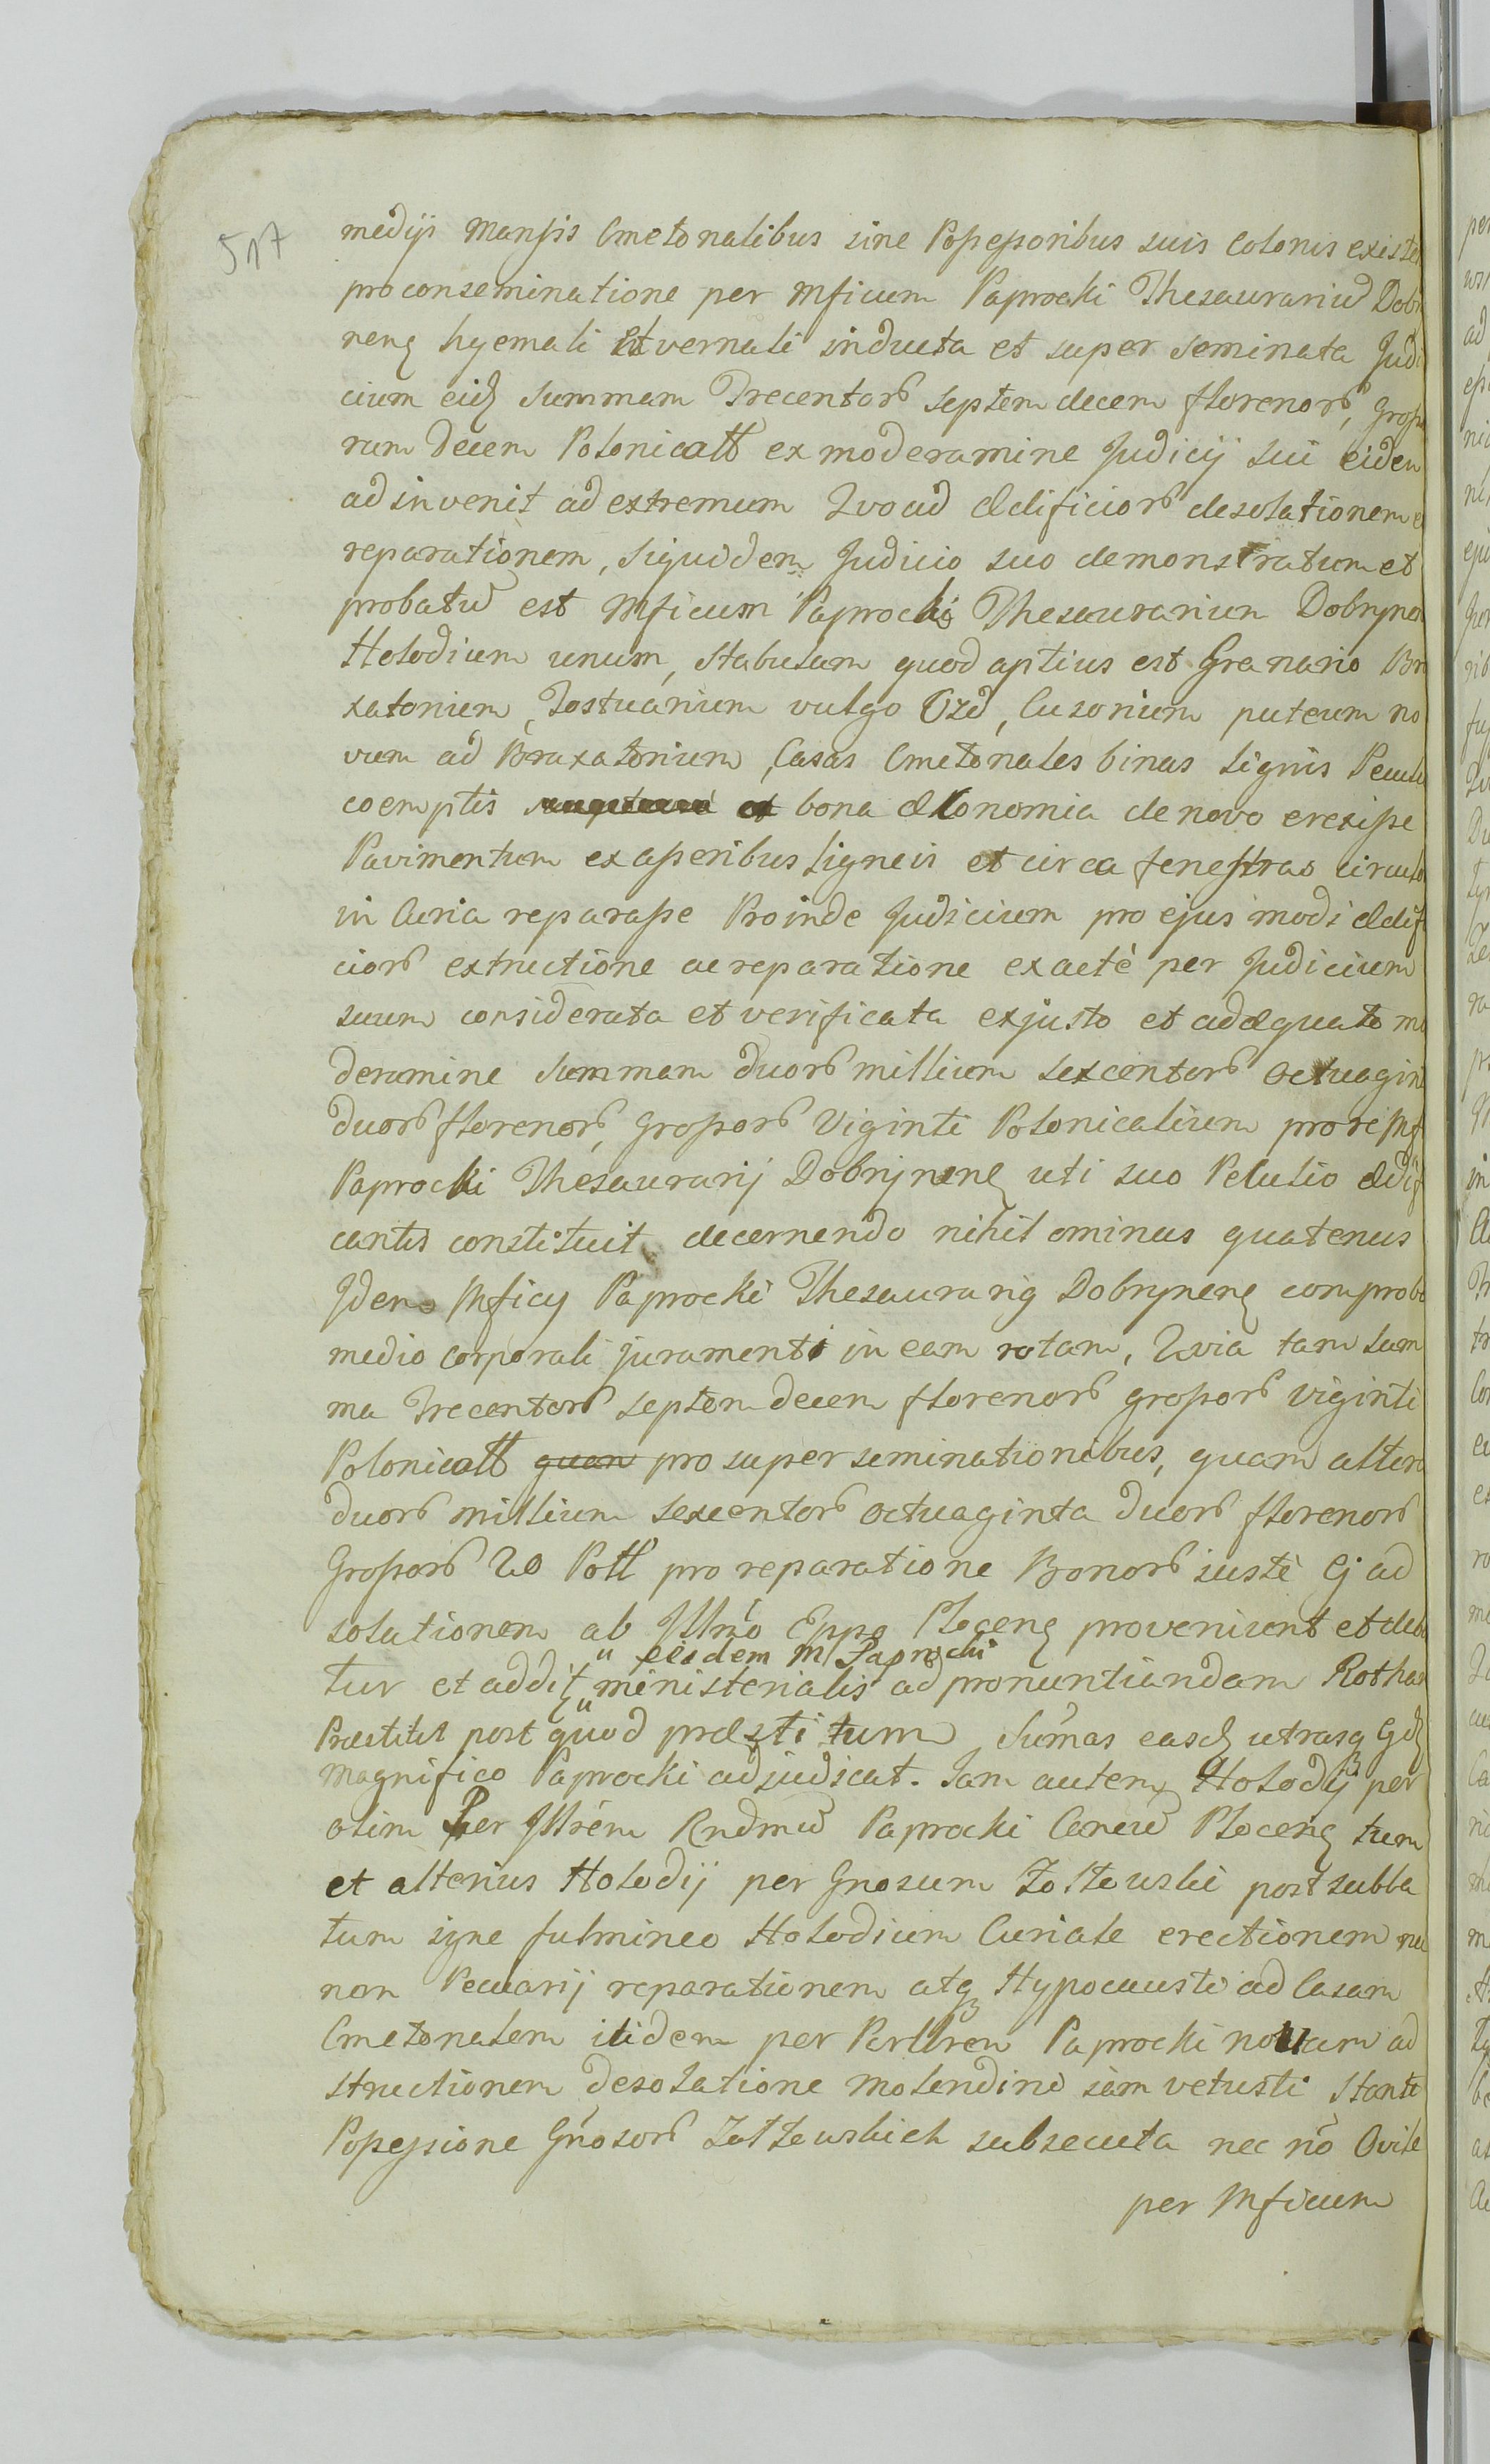 517
medijs Mansis Cmetonalibus sine Possessoribus suis Colonis existen
pro conseminatione per Mficum Paprocki Thesaurariu Dobr
nens hyemali et vernali inducta et super seminata Judi
cium eid summam Trecentor septem decem florenor, Grosso
rum Decem Polonicall ex moderamine Judicij sui eidem
ad invenit ad extremum Quoad Ædificior desolationem e
reparationem, siquidem Judicio suo demonstratum et
probatu est Mficum Paprocki Thesaurarium Dobrynen
Holodium unum, stabulum quod aptius est Granario Bra
xatorium, Tostuarium vulgo Ozd, Cusorium puteum no
vum ad Braxatorium, Casas Cmetonales binas lignis Peculi
coemptis bona Æconomia de novo erexisse
Pavimentum ex asseribus ligneis et circa fenestras circulo
in Curia reparasse Proinde Judicium pro ejus modi Ædif
cior extructione ac reparatione exactè per Judicium
suum considerata et verificata ex justo et adæquato mo
deramine summam duor millium sexcentor octuagin
duor florenor, Grossor Viginti Polonicalium pro re Mf
Paprocki Thesaurarij Dobrijnens uti suo Peculio Ædif
cantis constituit decernendo nihil ominus quatenus
Idem Mficy Paprocki Thesaurarig Dobrynens comprobe
medio corporali juramenti in eam rotam, Quia tam sum
ma Trecentor septem decem florenor grossor viginti
Polonicall quan pro super seminationibus, quam altera
duor millium sexcentor octuaginta duor florenor
Grossor 20 Poll pro reparatione Bonor iustè Ej ad
solutionem ab Illmo Eppo Plocens proveniunt et debe
eisdem M Paprocki
tur et addit ministerialis ad pronuntiandam Rotham
Præstitit post quod præstitum Sumas easd utrasq Gd
Magnifico Paprocki adjudicat. Jam autem Holodij per
olim Per Illrem Rndmu Paprocki Cancu Plocens tum
et alterius Holodij per Gnosum Zołtowski post subla
tum igne fulmineo Holodium Curiale erectionem nec
non Pecuarij reparationem atq Hypocausti ad Casam
Cmetonalem itidem per Perllrem Paprocki novam ad
structionem desolatione Molendini jam vetusti stante
Possessione Gnosor Zołtowskich subsecuta nec nō Ovile
per Mficum